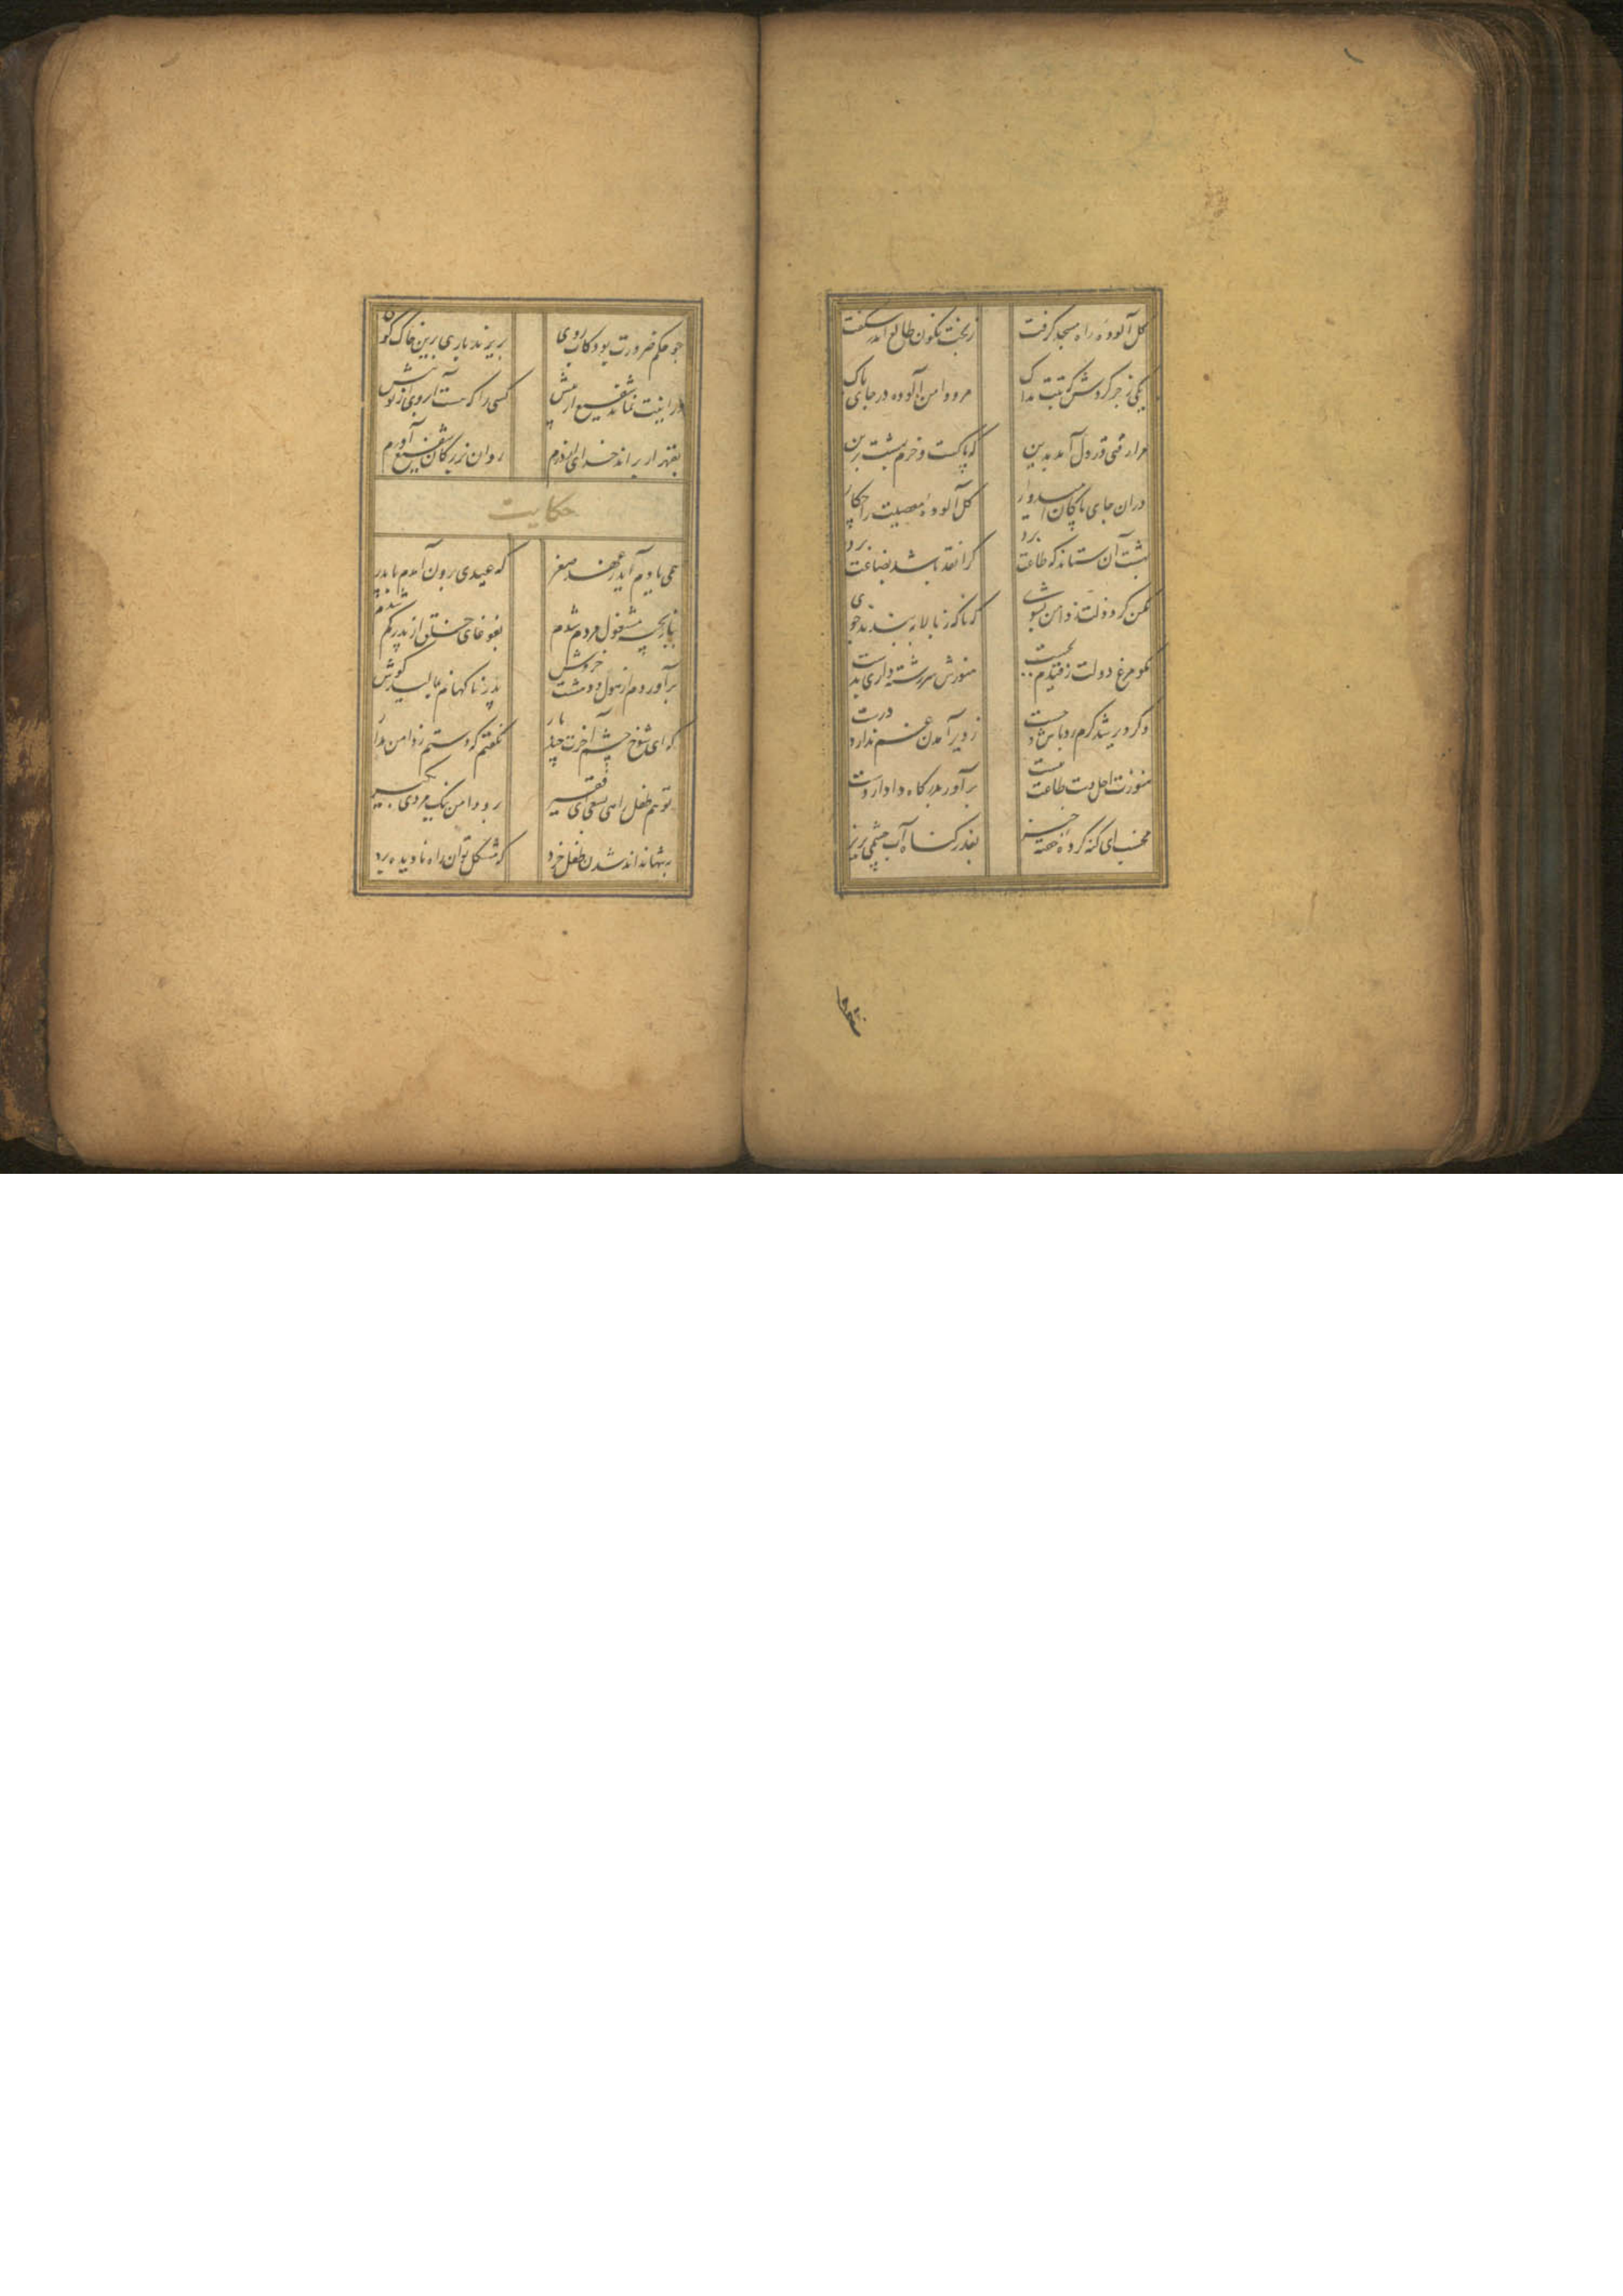 گل آلوده راه مسجد گرفت
ز بخت نگون طالع اندر شگفت
یکی زجر کردش که تبت یداک
مرو دامن آلوده در جای پاک
مرا رقتی در دل آمد بدین
که پاکست و خرم بهشت برین
در آن جای پاکان امیدوار
گل آلوده معصیت را چکار
بهشت آن ستاند که طاعت برد
کرا نقد باشد بضاعت برد
مکن گرد ذلت ز دامن بشوی
که ناگه ز بالا ببندند جوی
مگو مرغ دولت ز قیدم بجست
هنوزش سر رشته داری بدست
وگر دیر شد گرم رو باش و چست
ز دیر آمدن غم ندارد درست
هنوزت اجل دست طاعت نبست
برآور بدرگاه دادار دست
مخسب ای گنه کرده خفته خیز
بعذر گناه آب چشمی بریز
چو حکم ضرورت بود کآب روی
بریزند باری برین خاک کوی
ور آبت نماند شفیع آر پیش
کسی را که هست آب روی از تو بیش
بقهر ار براند خدای از درم
روان بزرگان شفیع آورم
حکایت
همی یادم آید ز عهد صغر
که عیدی برون آمدم با پدر
ببازیچه مشغول مردم شدم
بغوغای خلق از پدر گم شدم
برآوردم از هول و دهشت خروش
پدر ناگهانم بمالید گوش
که ای شوخ چشم آخرت چند بار
نگفتم که دستم ز دامن مدار
تو هم طفل راهی بسعی ای فقیر
برو دامن نیک مردی بگیر
به تنها نداند شدن طفل خرد
که مشکل توان راه نادیده برد